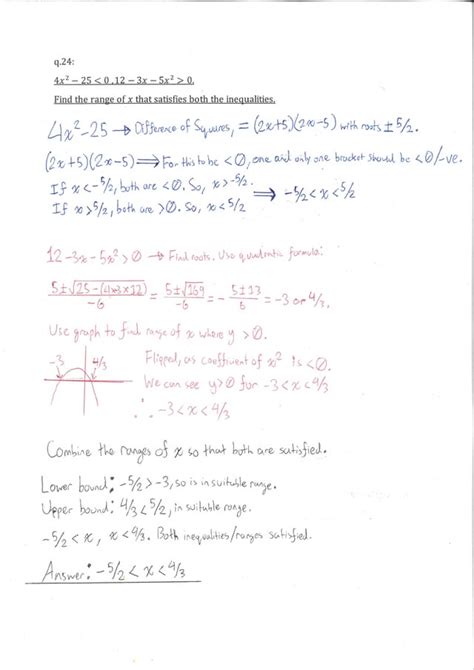 q.24:
4x² − 25 < 0 , 12 − 3x − 5x² > 0.
Find the range of x that satisfies both the inequalities.
4x²-25 → Difference of Squares, = (2x+5)(2x-5) with roots ± 5/2.
(2x+5)(2x-5) ⟹ For this to be <0, one and only one bracket should be <0/-ve.
If x<-5/2, both are <0. So, x>-5/2.
If x>5/2, both are >0. So, x<5/2
⟹ -5/2<x<5/2
12-3x-5x²>0 → Find roots. Use quadratic formula:
5±√25-(4x3x12)/-6 = 5±√169/-6 = - 5±13/6 = -3 or 4/3.
Use graph to find range of x where y >0.
-3 4/3 Flipped, as coefficient of x² is <0.
We can see y>0 for -3<x<4/3
∴ -3<x<4/3
Combine the ranges of x so that both are satisfied.
Lower bound: -5/2 > -3, so is in suitable range.
Upper bound: 4/3 < 5/2, in suitable range.
-5/2 < x, x < 4/3. Both inequalities/ranges satisfied.
Answer: -5/2 < x < 4/3